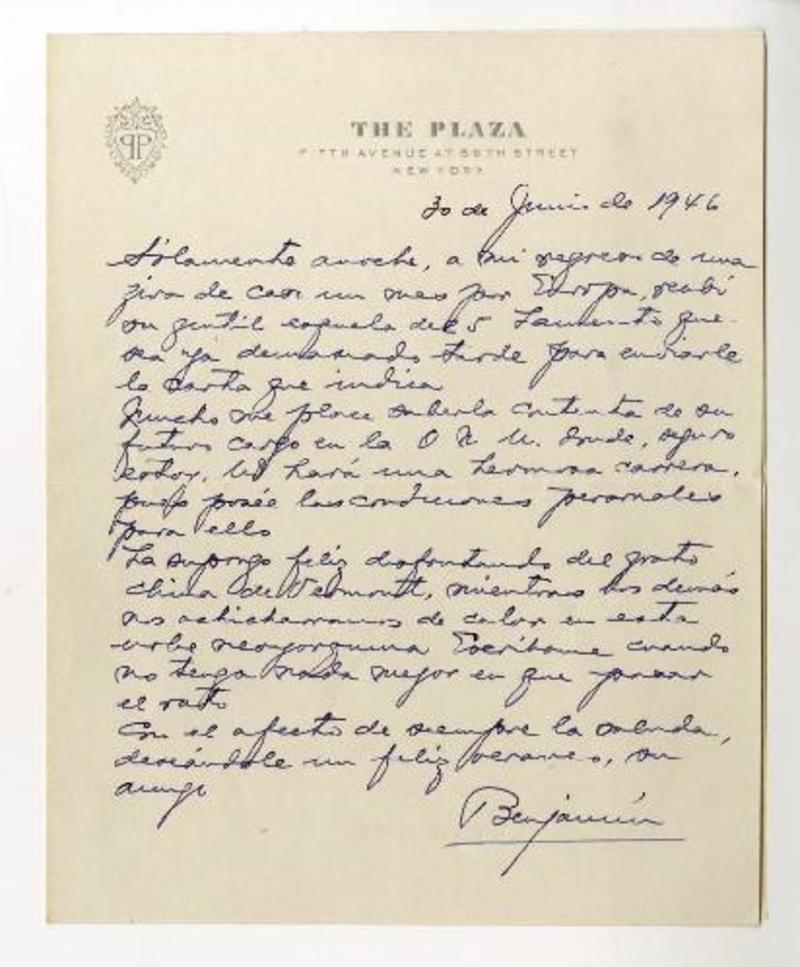 PP
THE PLAZA
FIFTH AVENUE AT 59TH STREET
NEW YORK
30 de Junio de 1946
Sólamente anoche, a mi regreso de una
gira de casi un mes por Europa, recibí
su gentil esquela del 5. Lamento que
sea ya demasiado tarde para enviarle
la carta que indica
Mucho me place saberla contenta de su
futuro cargo en la O N U. donde, seguro
estoy, Ud hará una hermosa carrera,
pues posée las condiciones personales
para ello
La supongo feliz disfrutando del grato
clima de Vermontt, mientras los demás
nos achicharramos de calor en esta
urbe neoyorquina Escríbame cuando
no tenga nada mejor en que pasar
el rato
Con el afecto de siempre la saluda,
deseándole un feliz veraneo, su
amigo
Benjamín